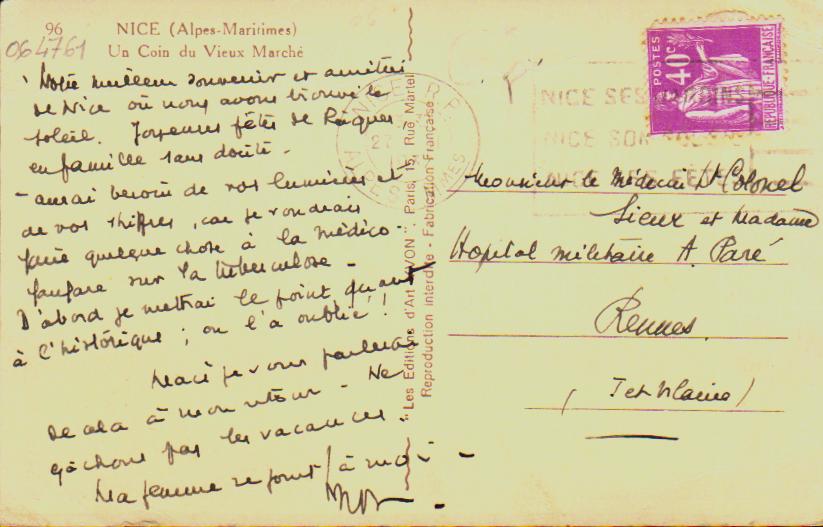 96 NICE (Alpes-Maritimes)
Un Coin du Vieux Marché
064761
Notre meilleur souvenir et amitié
de Nice où nous avons trouvé le
soleil. Joyeuses fêtes de Pâques
en famille sans doute -
- aurai besoin de vos lumières et
de vos chiffres, car je voudrais
faire quelque chose à la médico-
fanfare sur la tuberculose -
D'abord je mettrai le point quant
à l'historique ; on l'a oublié !
Mais je vous parlerai
de cela à mon retour - Ne
gâchons pas les vacances.
Ma femme se joint à moi -
"Les Editions d'Art YVON", Paris, 15, Rue Martel
Reproduction Interdite - Fabrication Française
NICE R.P.
27
ALPES MARITIMES
NICE SES JARDINS
NICE SON
NICE SES FÊTES
POSTES
40c
REPUBLIQUE FRANÇAISE
Monsieur le Médecin Lt Colonel
Lieux et Madame
Hopital militaire A. Paré
Rennes
(I et Vilaine)